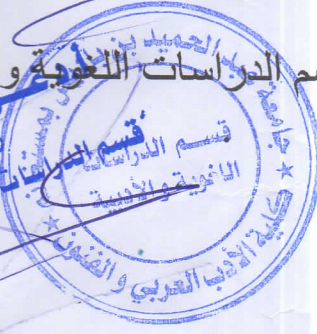 م الدراسات اللغوية و
جامعة عبد الحميد بن
قسم الدراسات
قسم الدراسات
اللغوية والأدبية
كلية الأدب العربي والفنون